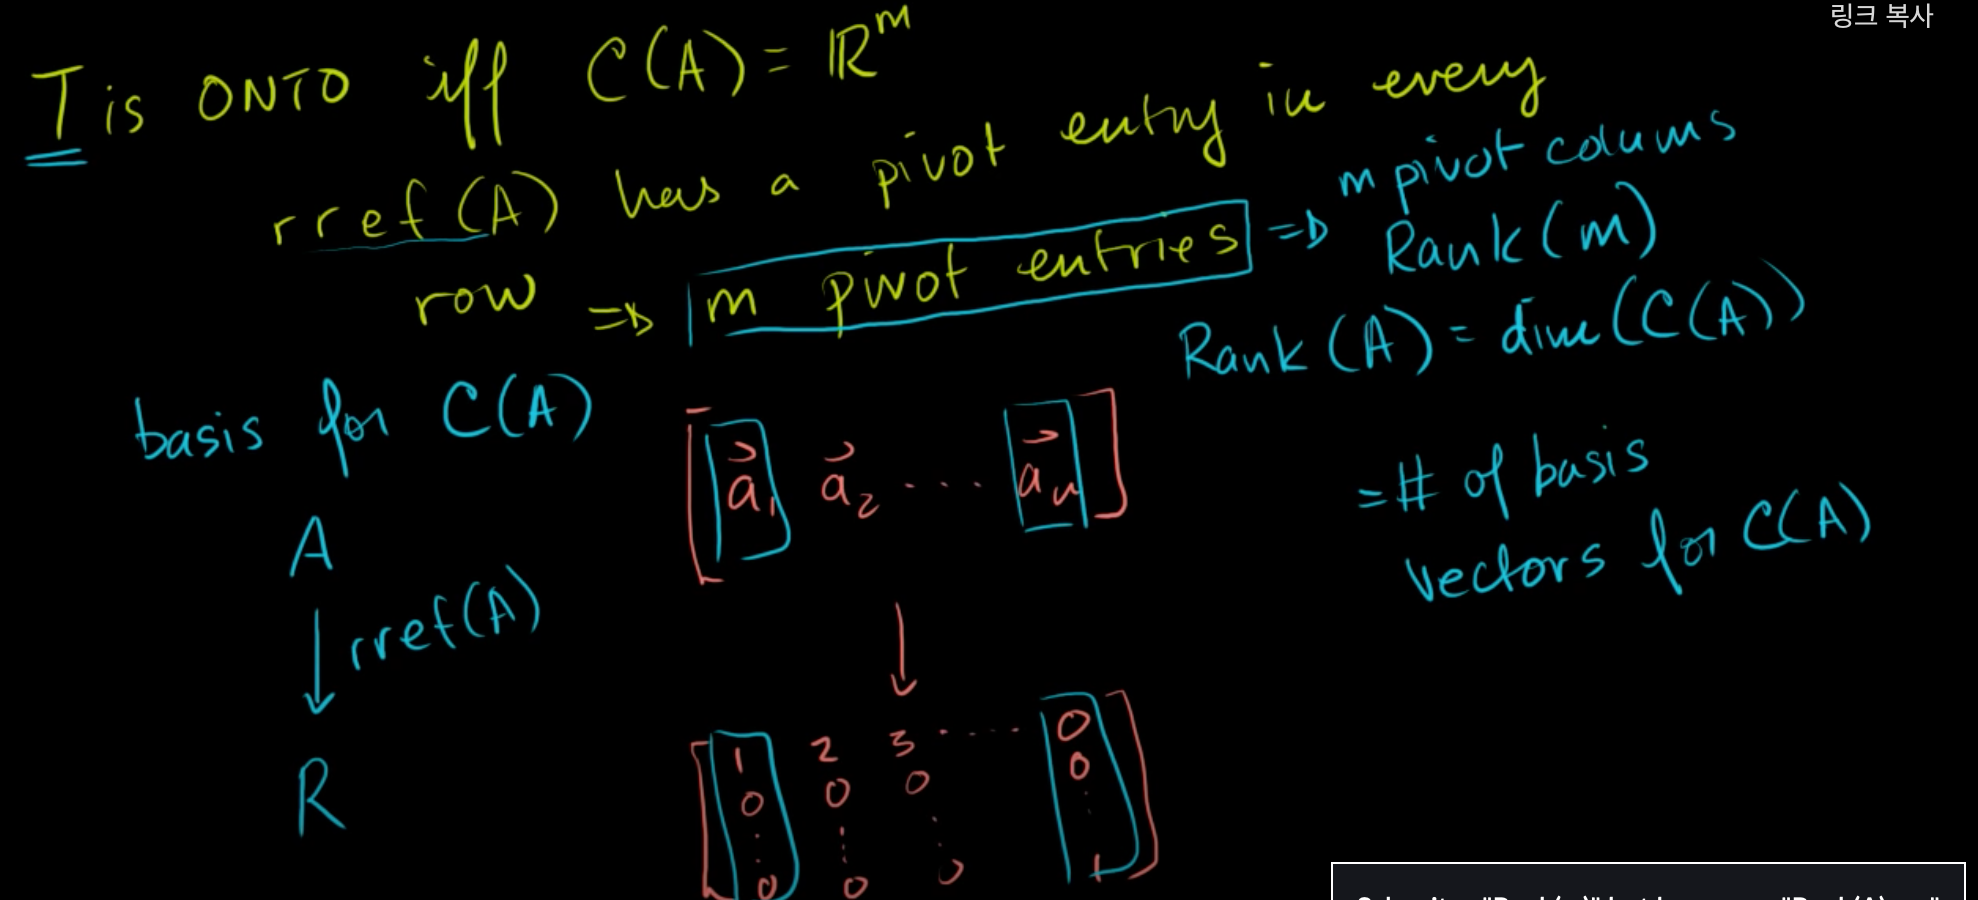 링크 복사
T is ONTO iff C(A) = ℝᵐ
rref(A) has a pivot entry in every
row ⇒ m pivot entries ⇒ m pivot colums
Rank(m)
Rank(A) = dim(C(A))
= # of basis
vectors for C(A)
basis for C(A)
A
rref(A)
R
[a⃗₁ a⃗₂ ... a⃗ₙ]
1 2 3 ..... 0
0 0 0 0
⋮ ⋮ ⋱ ⋮
0 0 0 1